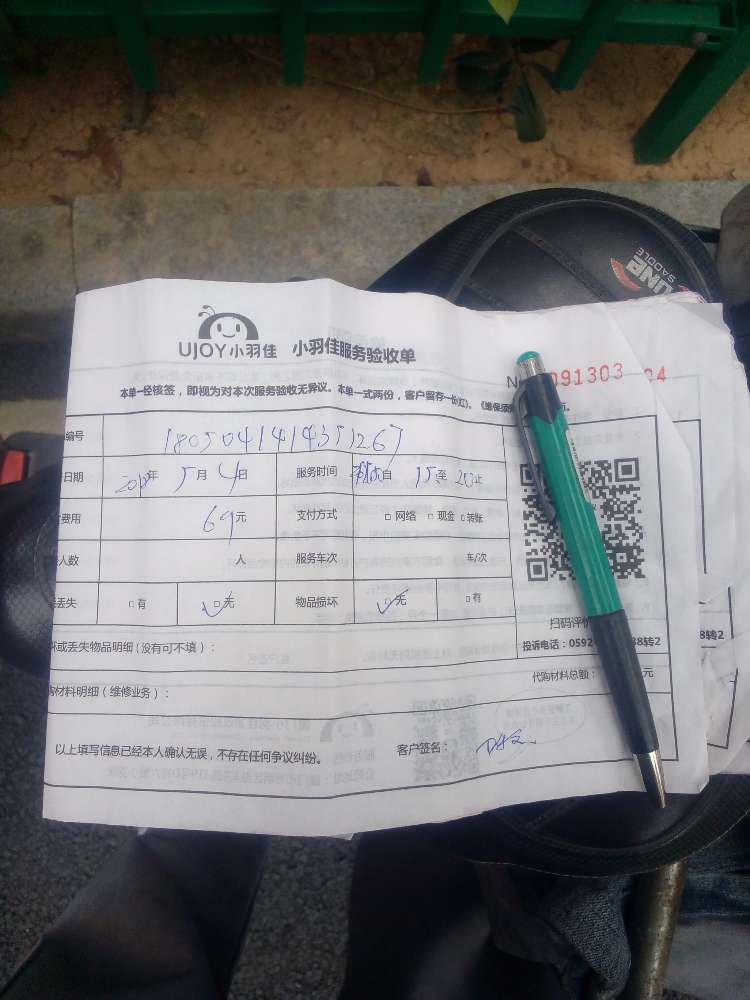 UJOY小羽佳 小羽佳服务验收单
N 091303 4
本单一经核签，即视为对本次服务验收无异议。本单一式两份，客户留存一份(红)。《维保须
编号 180504141435126
日期 年 5月 4日 服务时间 自 15至 20止
费用 69元 支付方式 □网络 □现金 □转账
人数 人 服务车次 车/次
丢失 □有 □无 物品损坏 □无 □有
扫码评价
投诉电话：0592 8转2
或丢失物品明细（没有可不填）：
材料明细（维修业务）： 代购材料总额： 元
以上填写信息已经本人确认无误，不存在任何争议纠纷。 客户签名：
8转2
SADDLE